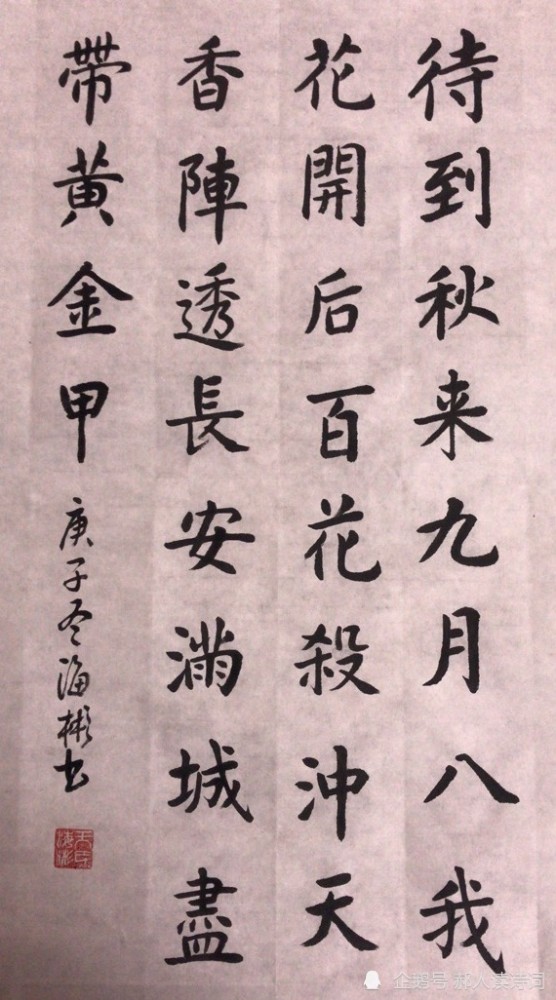 待到秋来九月八我
花開后百花殺沖天
香陣透長安滿城盡
帶黃金甲
庚子冬海彬书
企鹅号